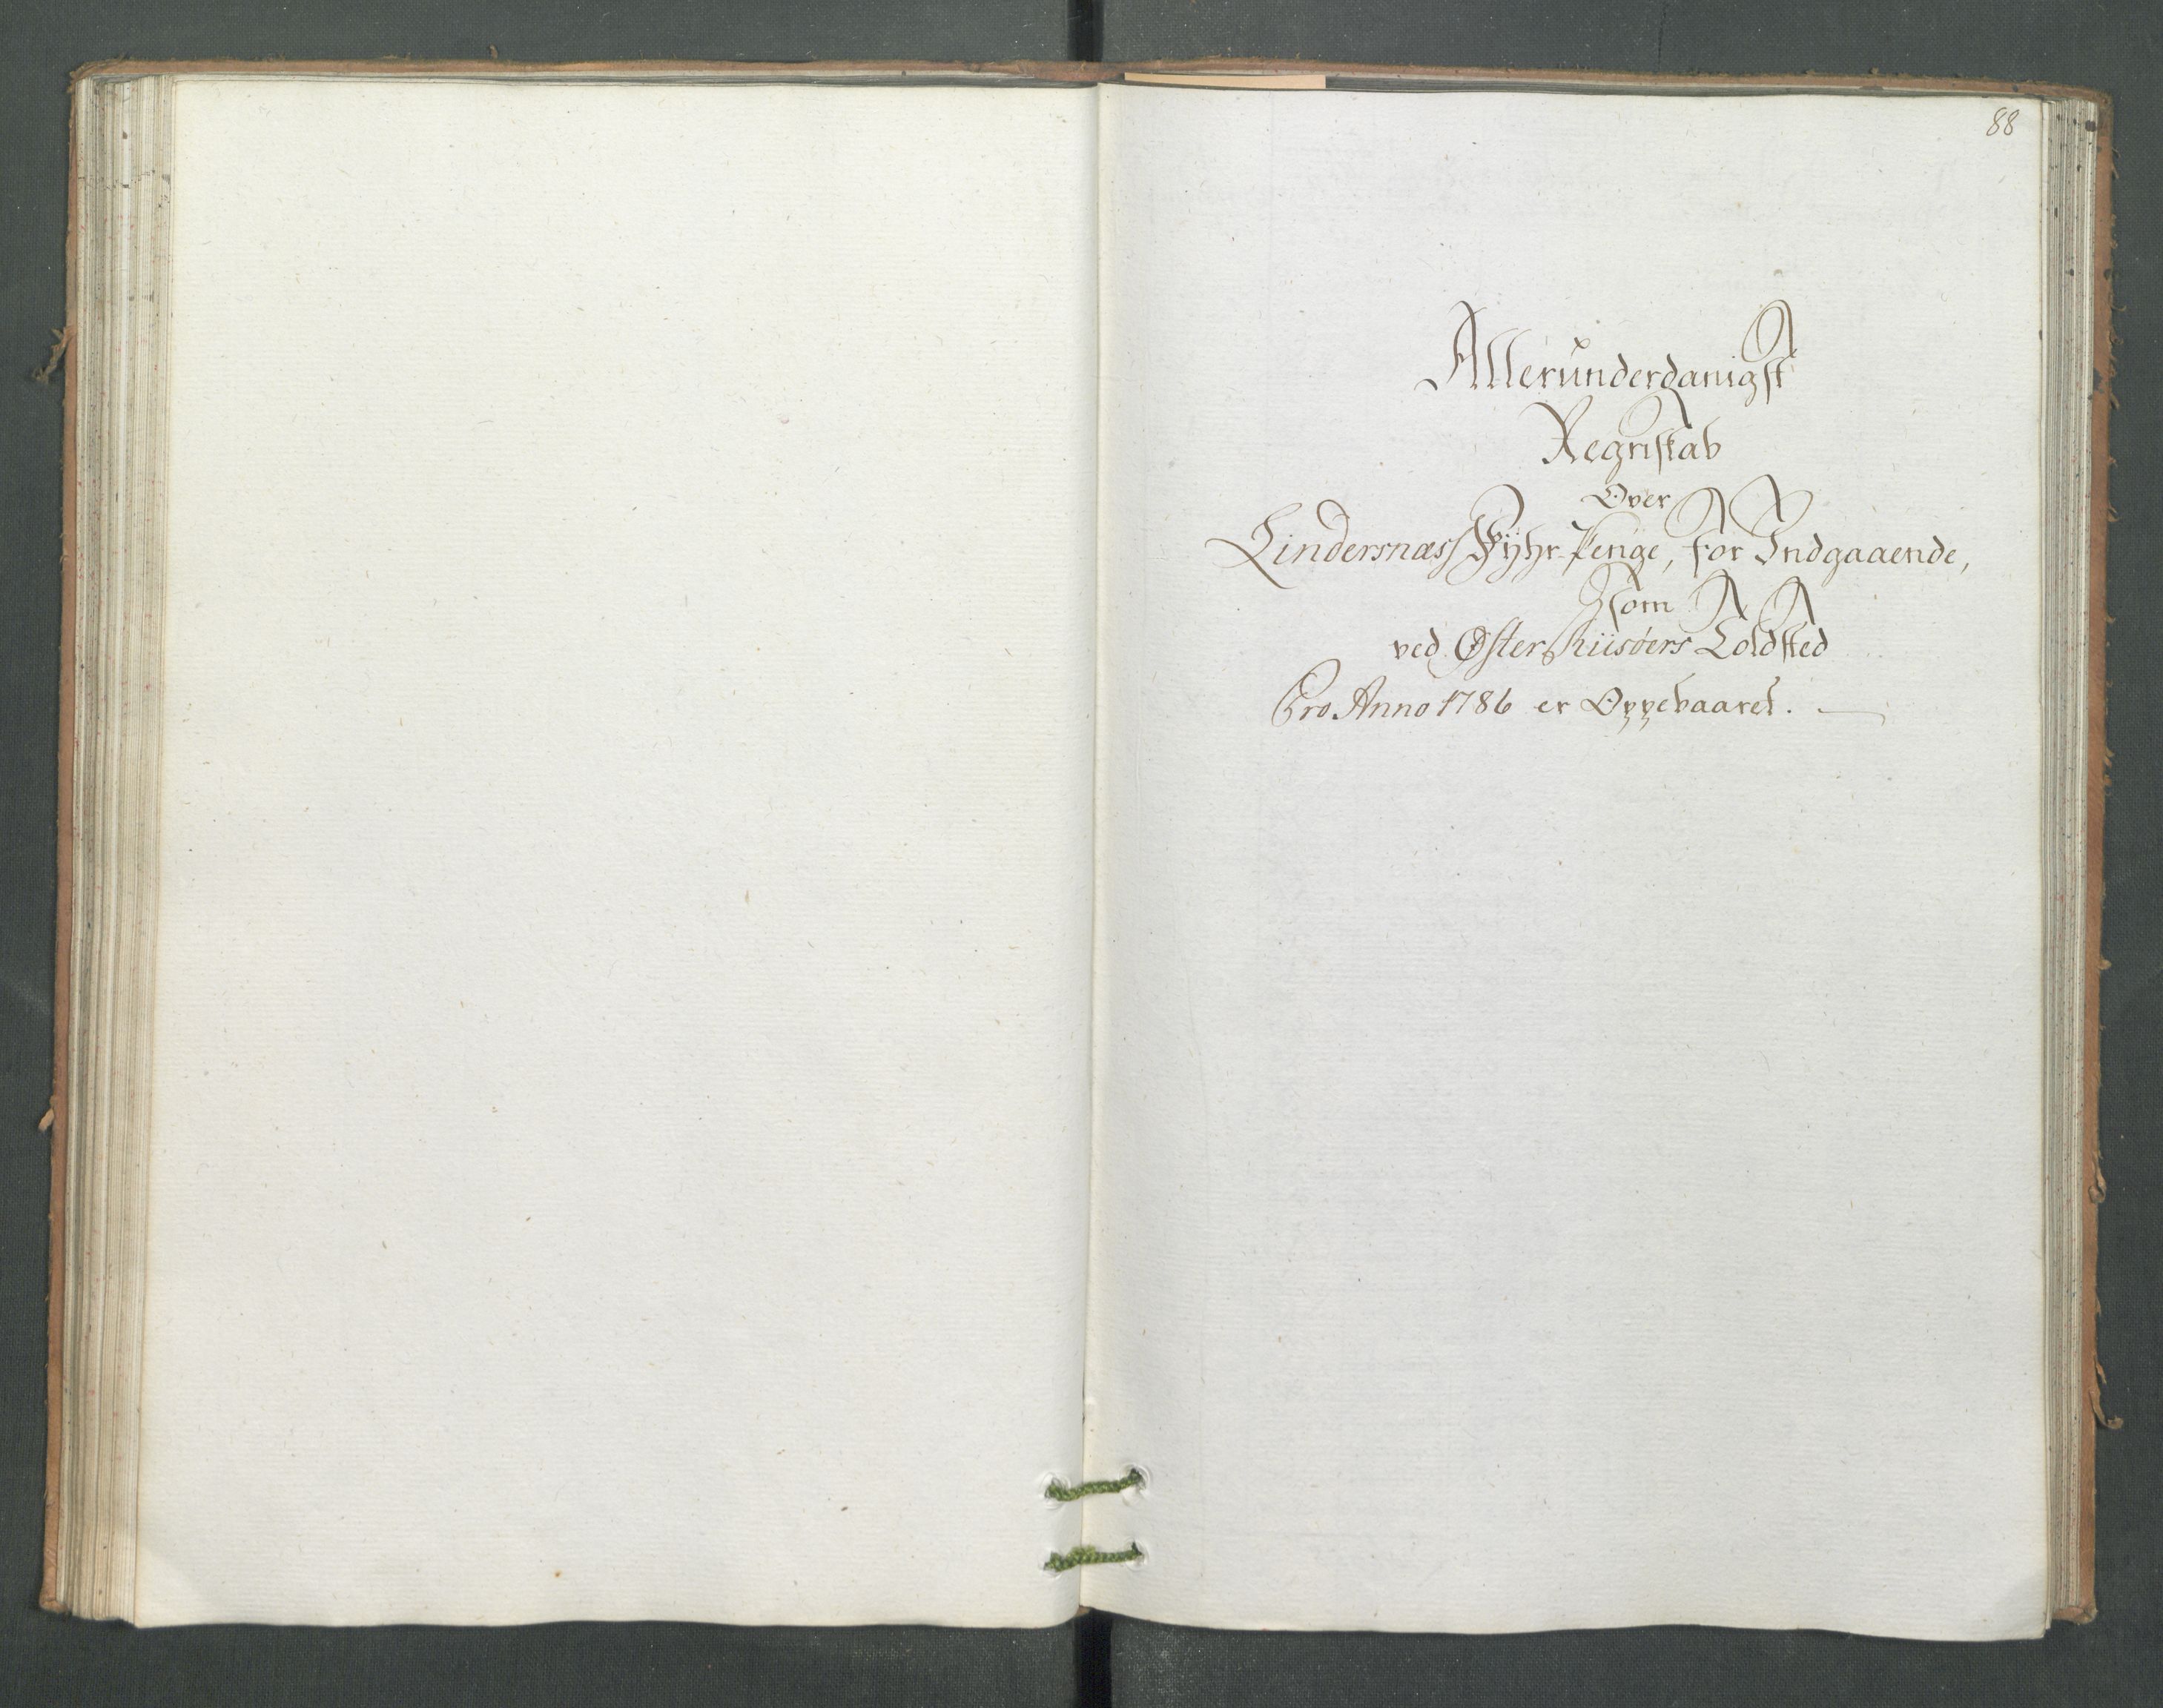 88
Allerunderdanigst
Regnskab
Over
Lindersnæss Fyhr-Penge, for Indgaaende,
som
ved Øster Riisøers Toldsted
Pro Anno 1786 er Oppebaaret.